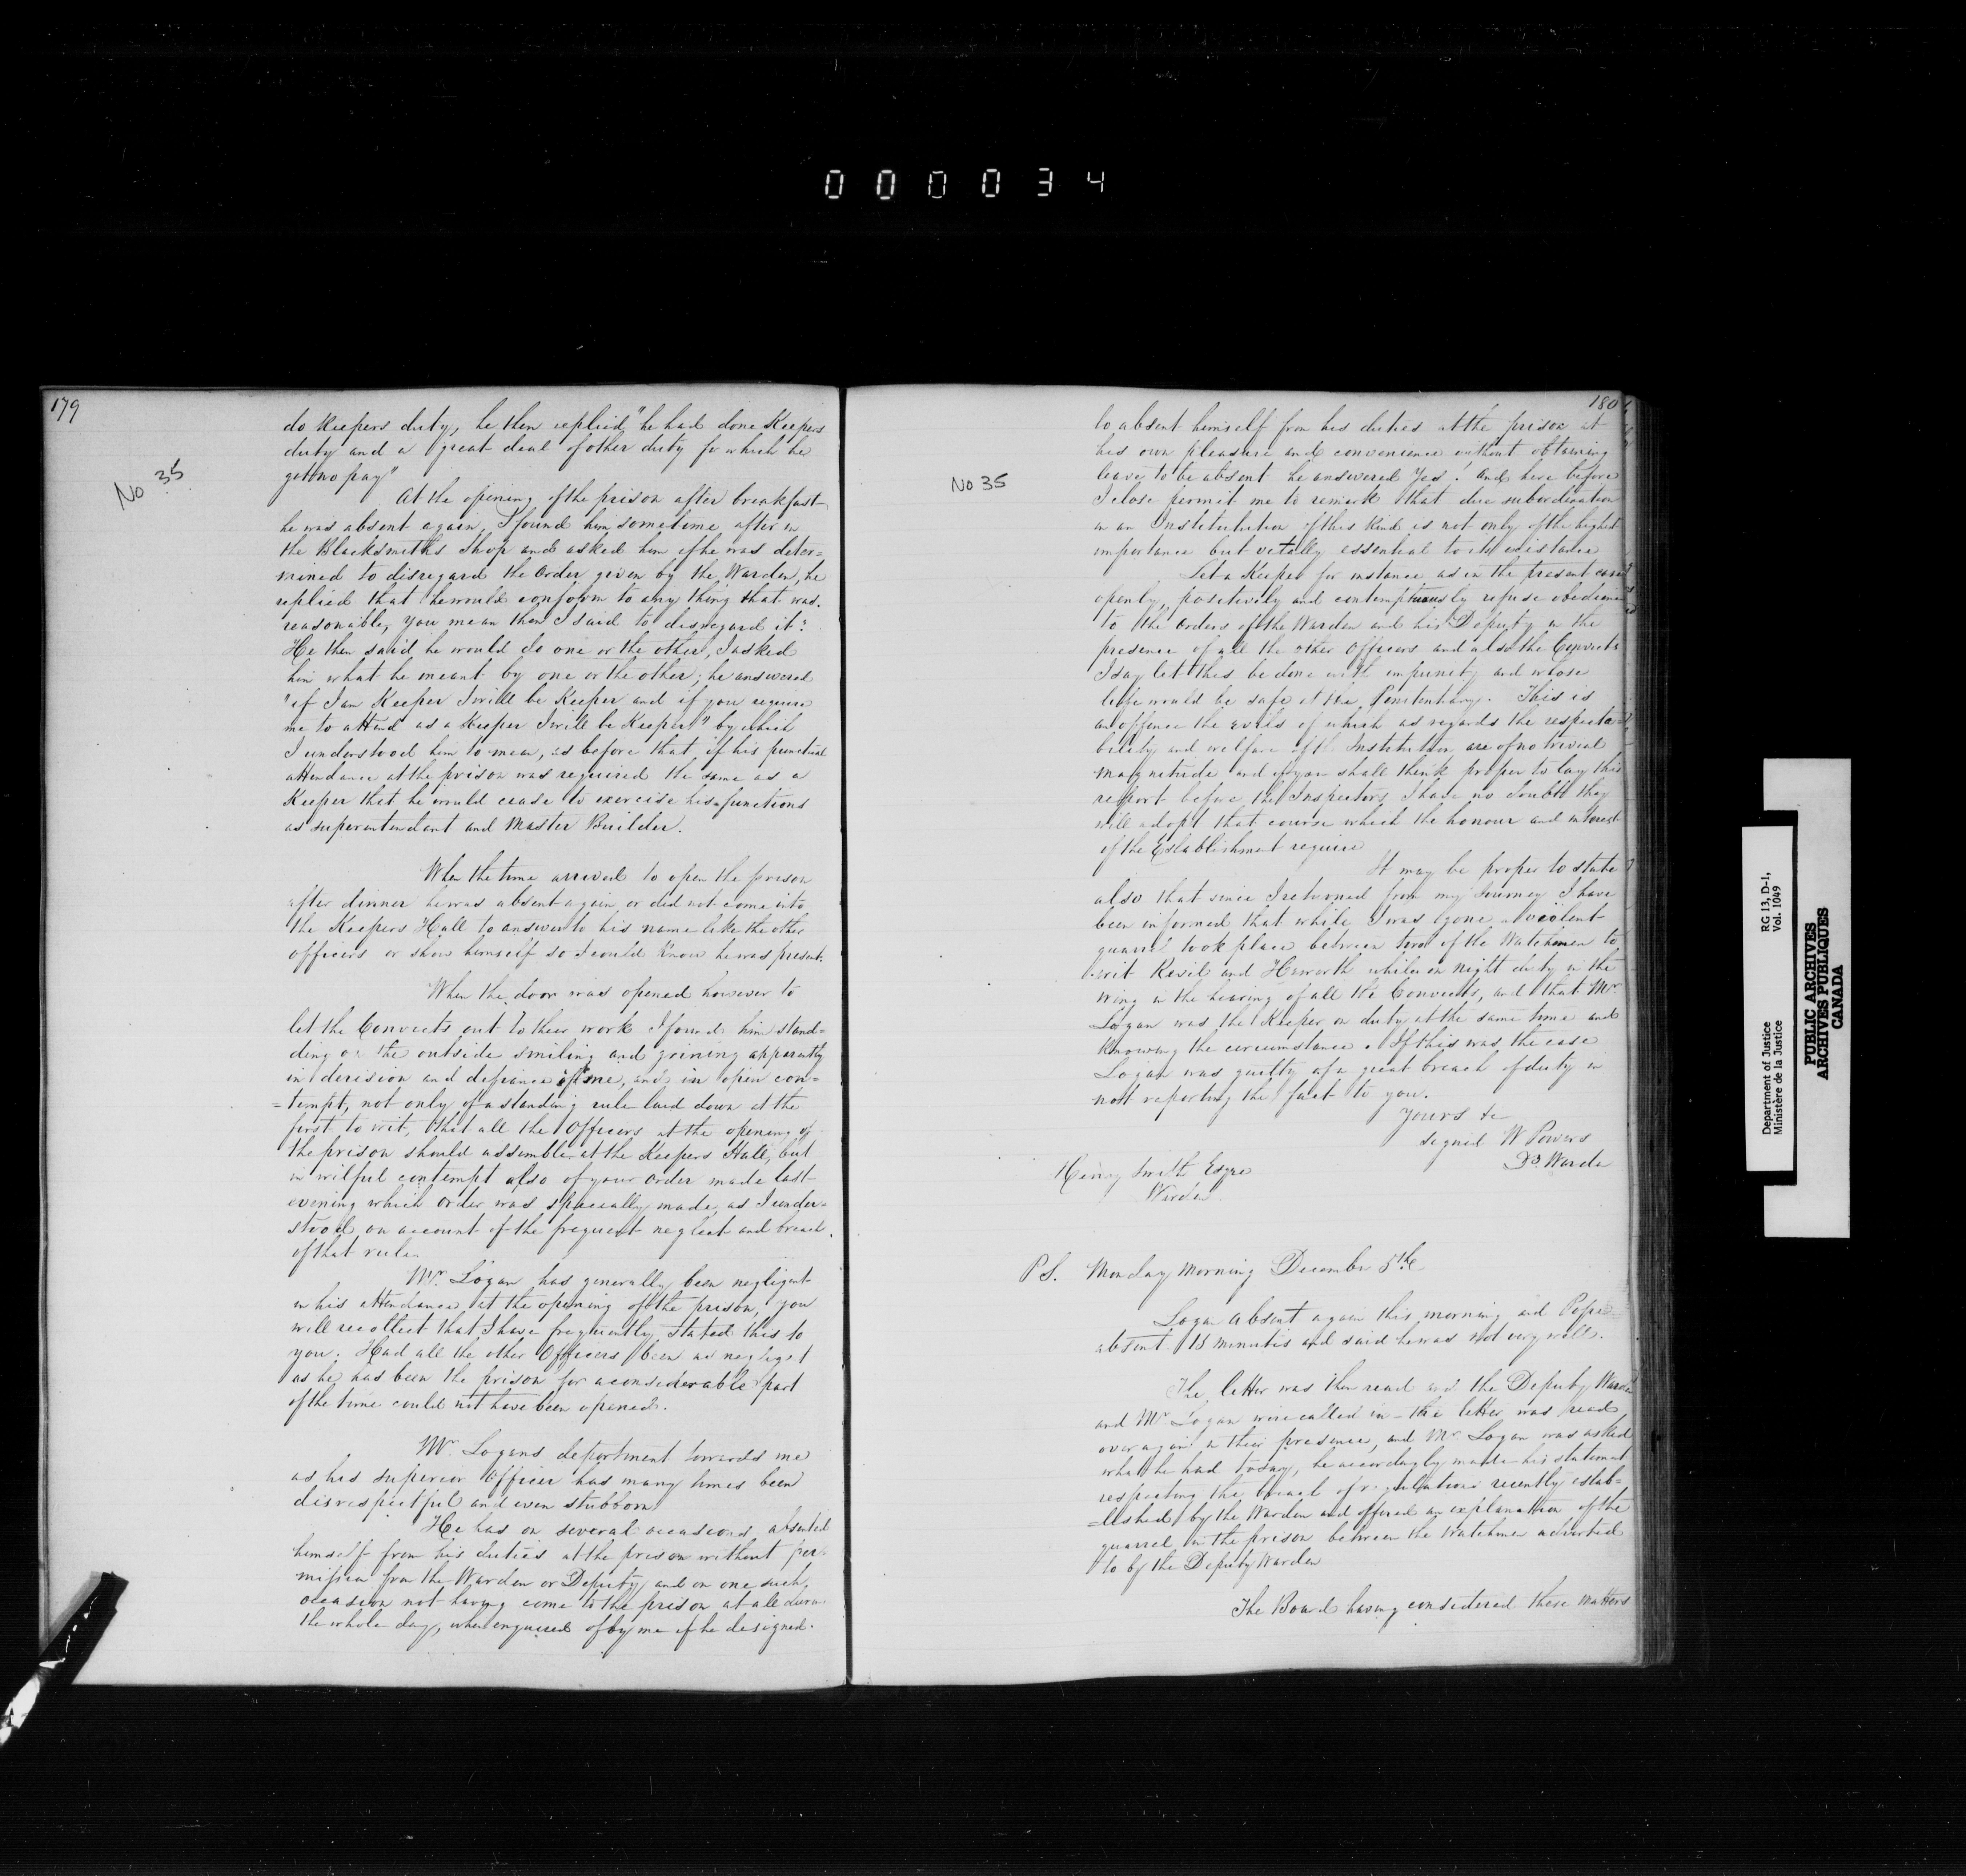 000034
179
No 35
do Keepers duty, he then replied "he had done Keepers
duty and a great deal of other duty for which he
got no pay"
At the opening of the prison after breakfast
he was absent again, I found him sometime after in
the Blacksmiths Shop and asked him if he was deter=
mined to disregard the Order given by the Warden, he
replied that he would conform to any thing that was
reasonable, you mean then I said to disregard it?
He then said he would do one or the other, I asked
him what he meant by one or the other; he answered
"if I am Keeper I will be Keeper and if you require
me to attend as a Keeper I will be Keeper" by which
I understood him to mean, as before that, if his punctual
attendance at the prison was required the same as a
Keeper that he would cease to exercise his functions
as superintendant and Master Builder.
When the time arrived to open the prison
after dinner he was absent again or did not come into
the Keepers Hall to answer to his name like the other
officers or show himself so I could know he was present.
When the door was opened however to
let the Convicts out to their work I found him stand=
ding on the outside smiling and grining apparently
in derision and defiance of me, and in open con=
=tempt, not only of a standing rule laid down at the
first to wit, that all the Officers at the opening of
the prison should assemble at the Keepers Hall, but
in wilful contempt also of your Order made last
evening which order was specially made, as I under=
stood, on account of the frequent neglect and breach
of that rule.
Mr. Logan has generally been negligent
in his attendance at the opening of the prison, you
will recollect that I have frequently stated this to
you. Had all the other Officers been as negligent
as he has been the prison for a considerable part
of the time could not have been opened.
Mr. Logans deportment towards me
as his superior Officer has many times been
disrespectful and even stubborn
He has on several occasions absented
himself from his duties at the prison without per=
mission from the Warden or Deputy and on one such
occasion not having come to the prison at all
the whole day, when enquired of by me if he designed
180
No 35
to absent himself from his duties at the prison at
his own pleasure and convenience without obtaining
leave to be absent he answered Yes! And here before
I close permit me to remark that due subordination
in an Institution of this kind is not only of the highest
importance but vitally essential to its existance
Let a Keeper for instance as in the present case
openly, positively and contemptuously refuse obedience
to the orders of the Warden and his Deputy in the
presence of all the other Officers and also the Convicts
I say let this be done with impunity and whose
life would be safe at the Penitentiary. This is
an offence the evils of which as regards the respecta=
bility and welfare of the Institution are of no trivial
magnitude and if you shall think proper to lay this
report before the Inspectors I have no doubt they
will adopt that course which the honour and interest
of the Establishment require
It may be proper to state
also that since I returned from my Journey I have
been informed that while I was gone a violent
quarrel took place between two of the Watchmen to
wit Revil and Haworth while on night duty in the
Wing in the hearing of all the Convicts, and that Mr.
Logan was the Keeper on duty at the same time and
Knowing the circumstance. If this was the case
Logan was guilty of a great breach of duty in
not reporting the fact to you.
Yours &c
signed W Powers
Dy. Warden
Henry Smith Esqre
Warden
PS. Monday Morning December 5th
Logan absent again this morning and Pope
absent 15 minutes and said he was not very well.
The letter was then read and the Deputy Warden
and Mr. Logan were called in – the letter was read
over again in their presence, and Mr. Logan was asked
what he had to say, he accordingly made his statement
respecting the breach of regulations recently estab=
=lished by the Warden and offered an explanation of the
quarrel in the prison between the Watchmen adverted
to by the Deputy Warden
The Board having considered these matters
Department of Justice
Ministère de la Justice
RG 13, D-1,
Vol. 1049
PUBLIC ARCHIVES
ARCHIVES PUBLIQUES
CANADA